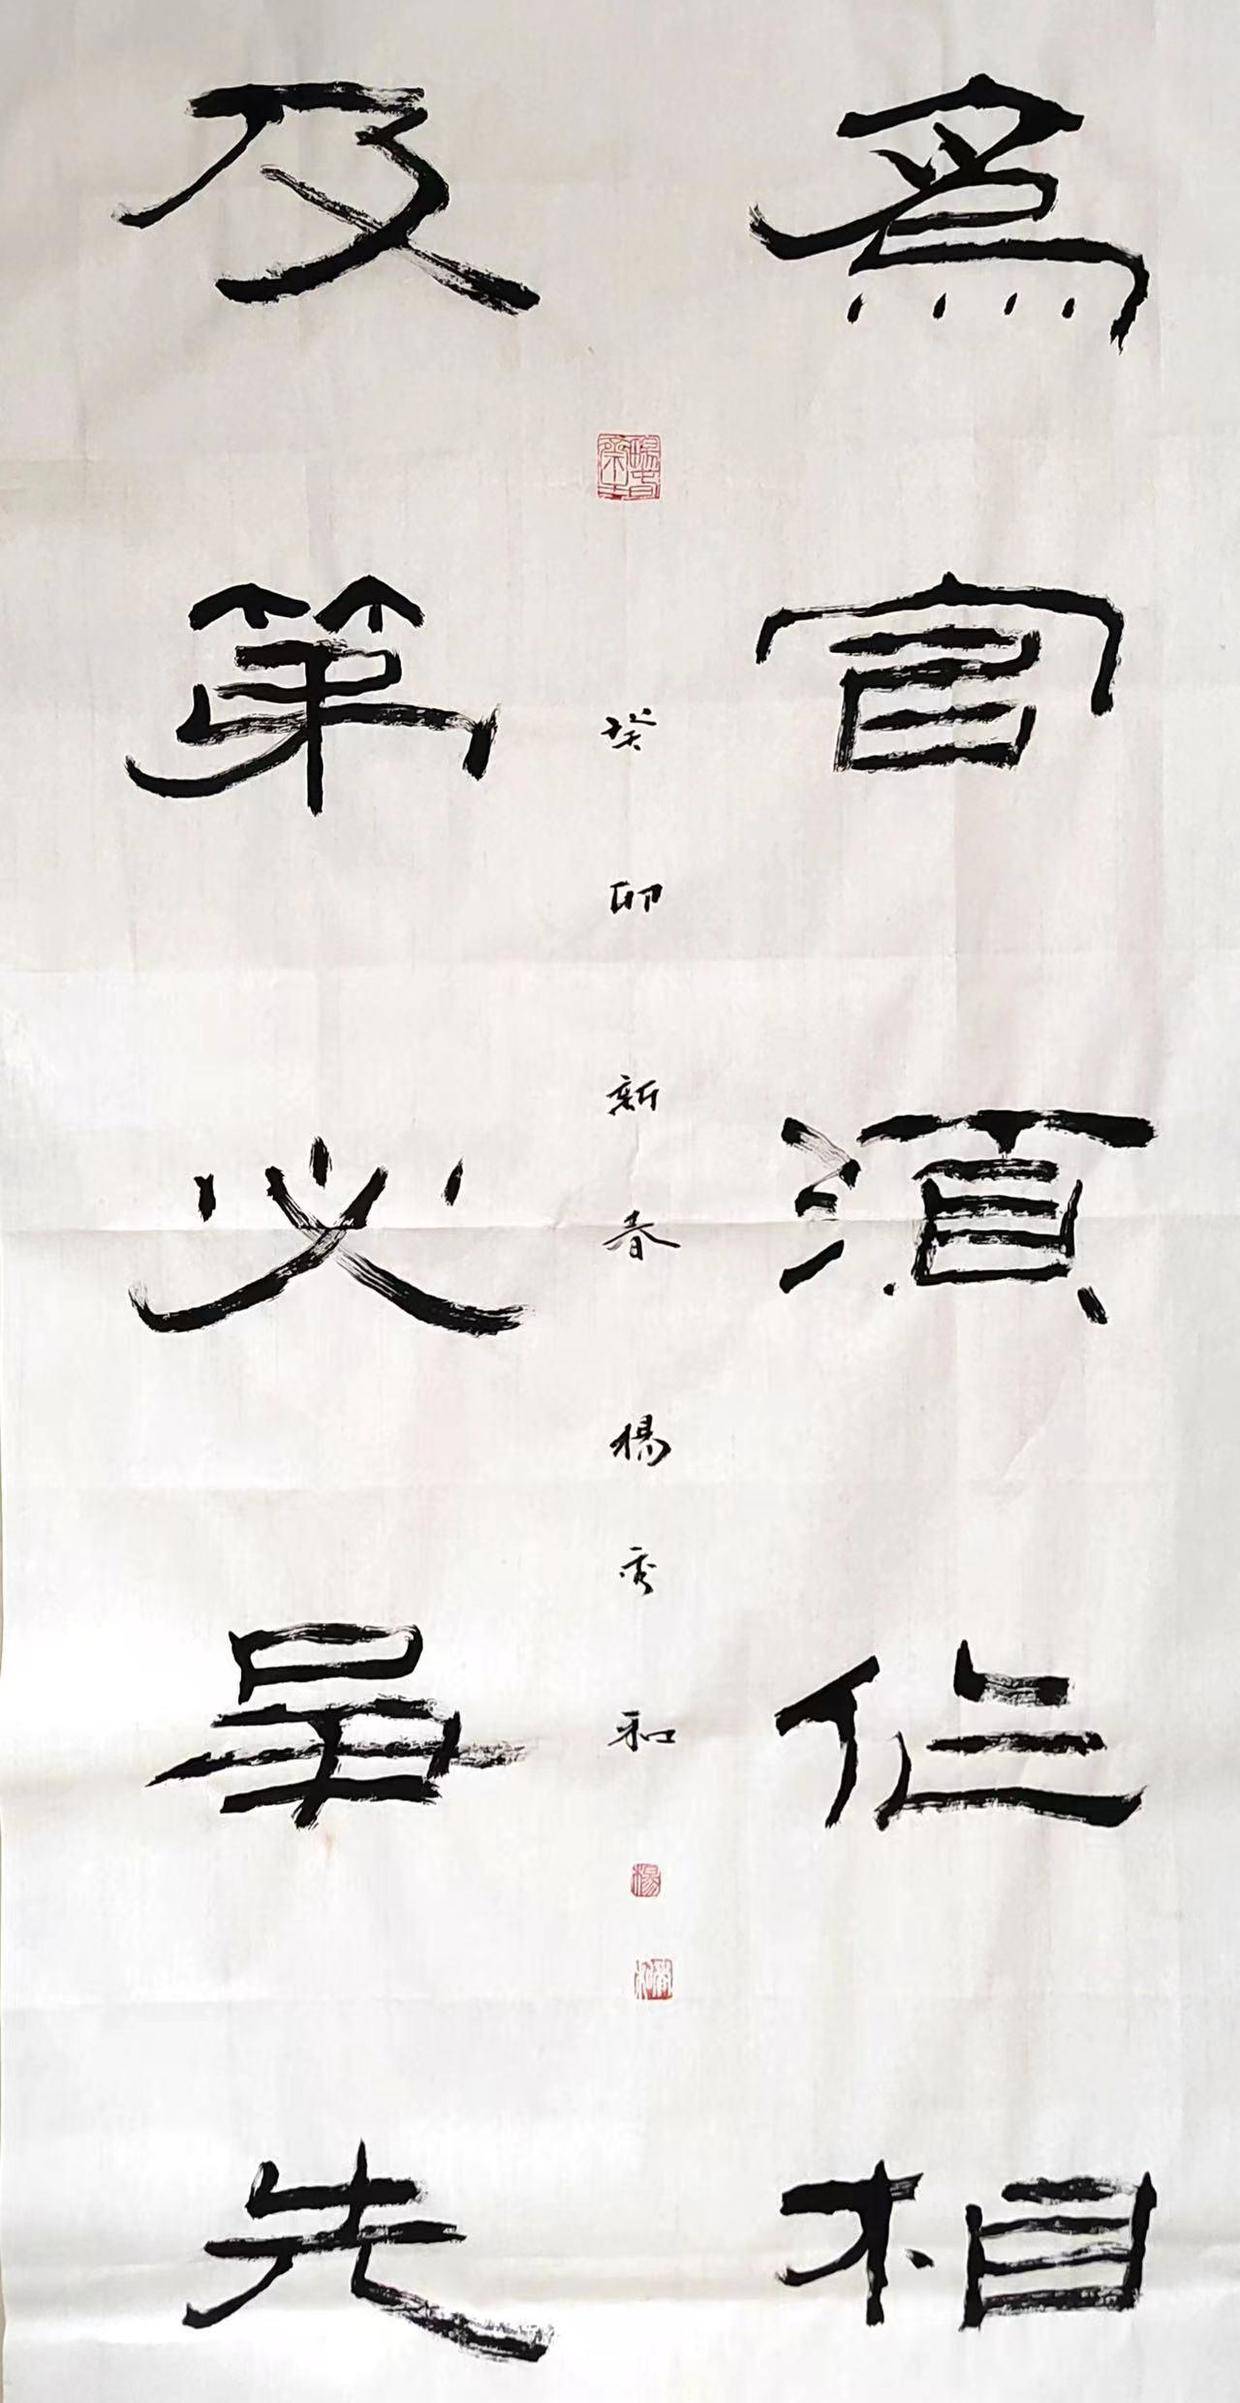 為官須作相
及第必爭先
癸卯新春楊秀和
楊